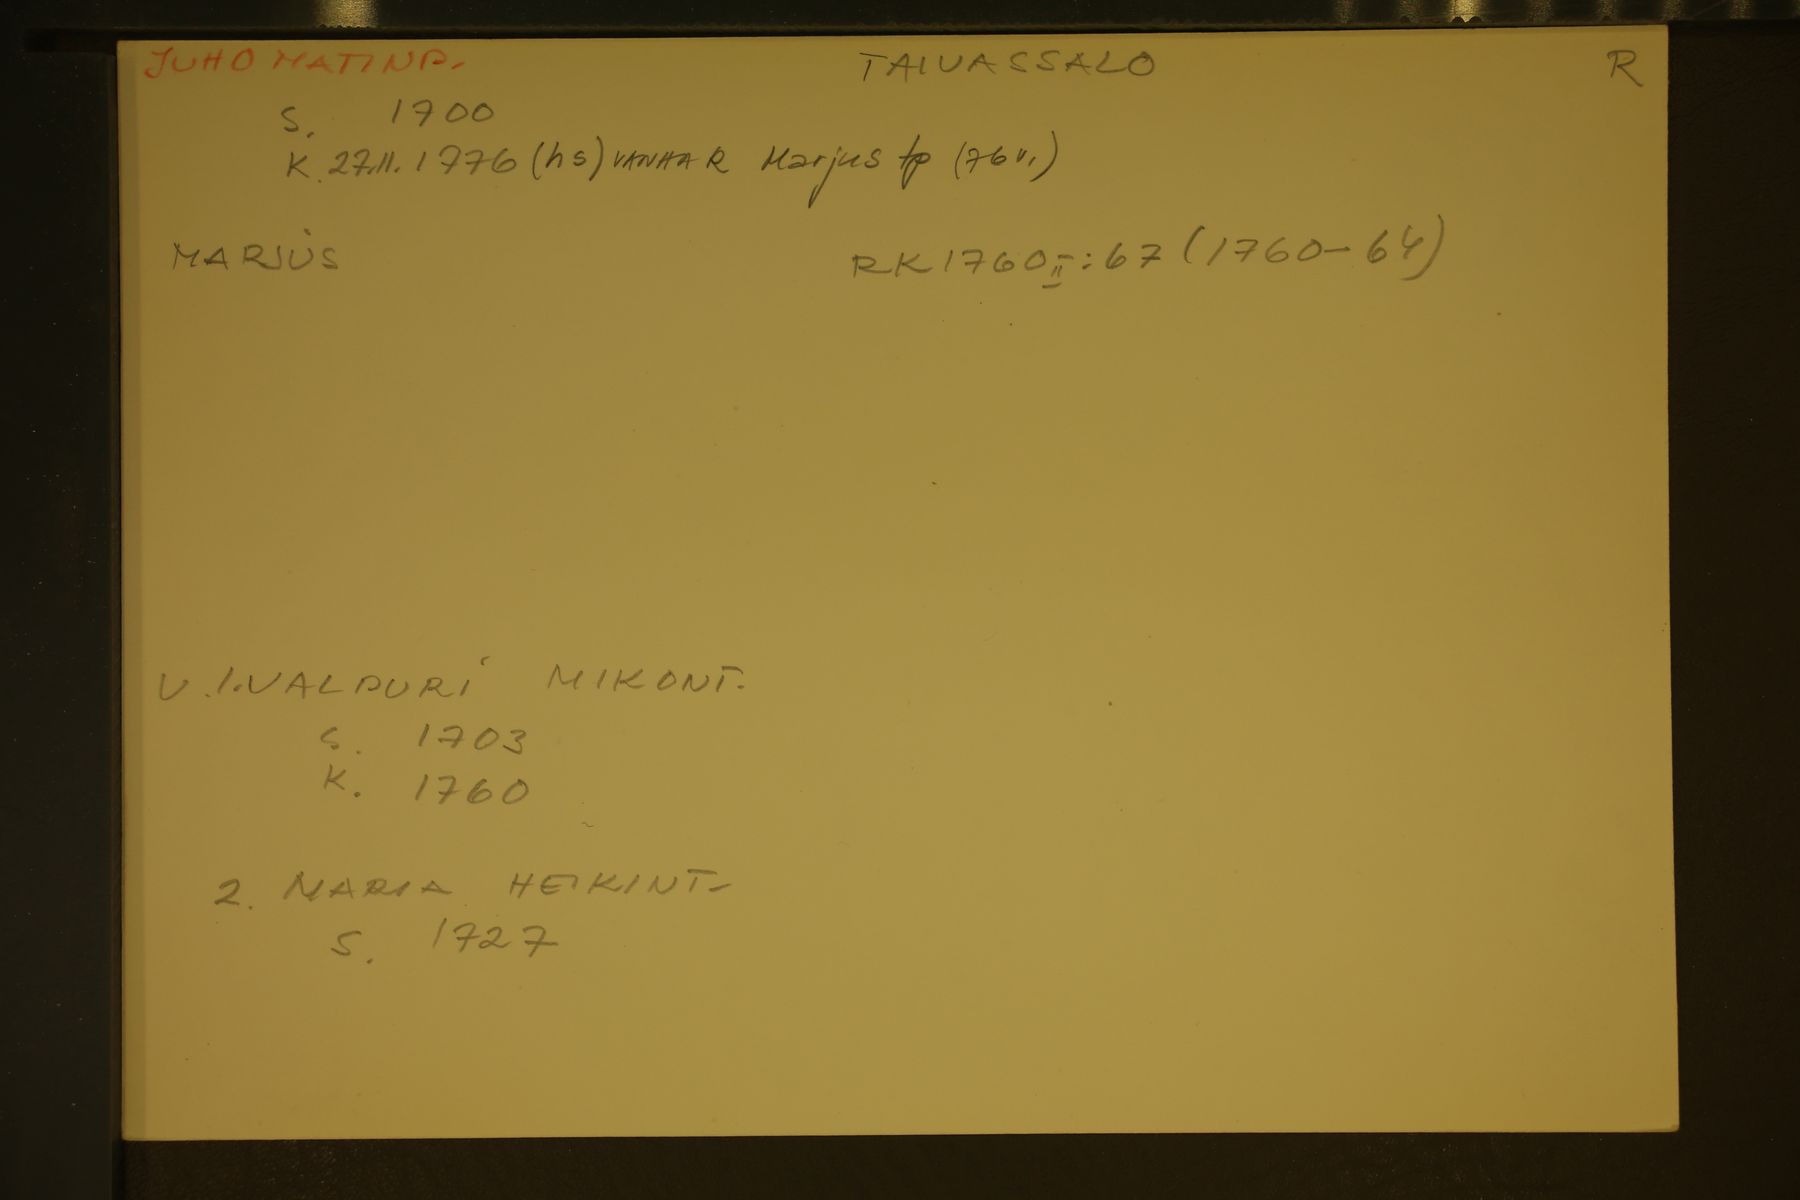 JUHO MATINP. TAIVASSALO R
S. 1700
K. 27.11.1776 (hs) VANHA R Marjus tp (76 v.)
MARJUS RK 1760 II : 67 (1760-64)
V. 1. VALPURI MIKONT.
S. 1703
K. 1760
2. MARIA HEIKINT-
S. 1727